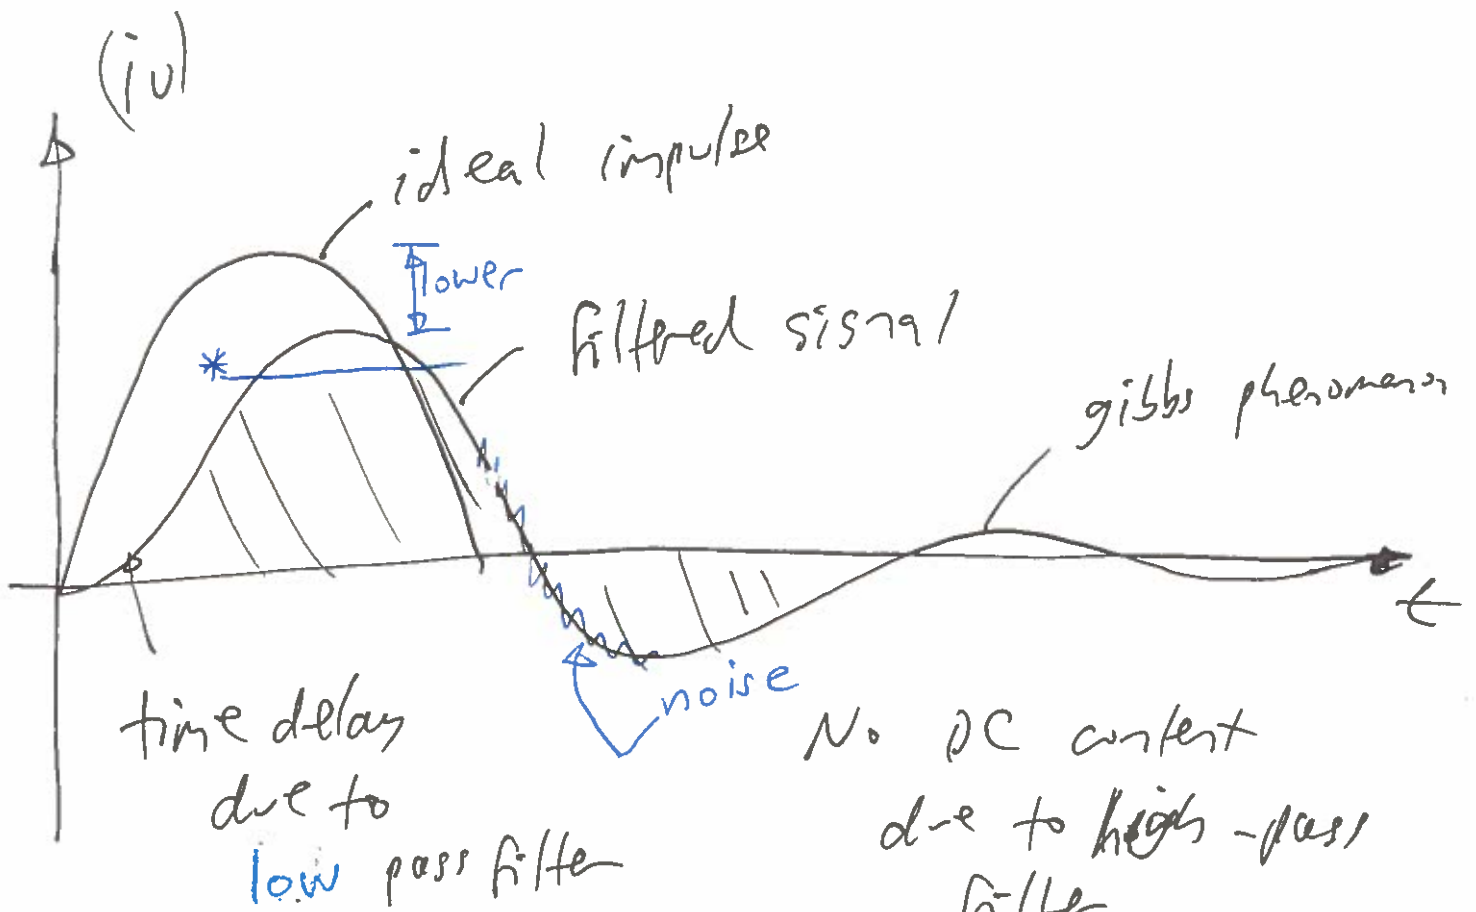 (iv)
ideal impulse
lower
filtered signal
*
gibbs phenomenon
t
noise
time delay
due to
low pass filter
No DC content
due to high-pass
filter